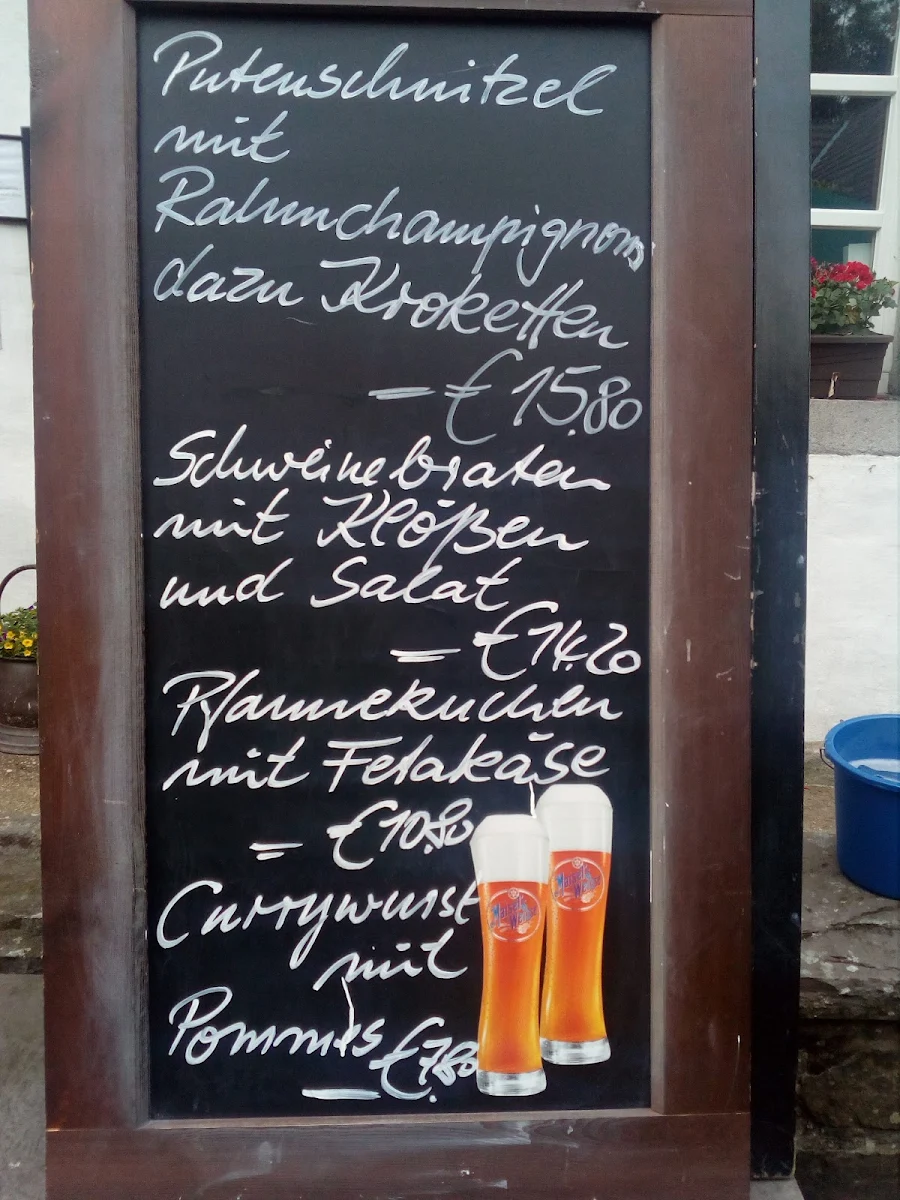 Putenschnitzel
mit
Rahmchampignons
dazu Kroketten
— € 15.80
Schweinebraten
mit Klößen
und Salat
= € 14.20
Pfannekuchen
mit Fetakäse
= € 10.80
Currywurst
mit
Pommes € 7.80
Maisel's
Weisse
Maisel's
Weisse